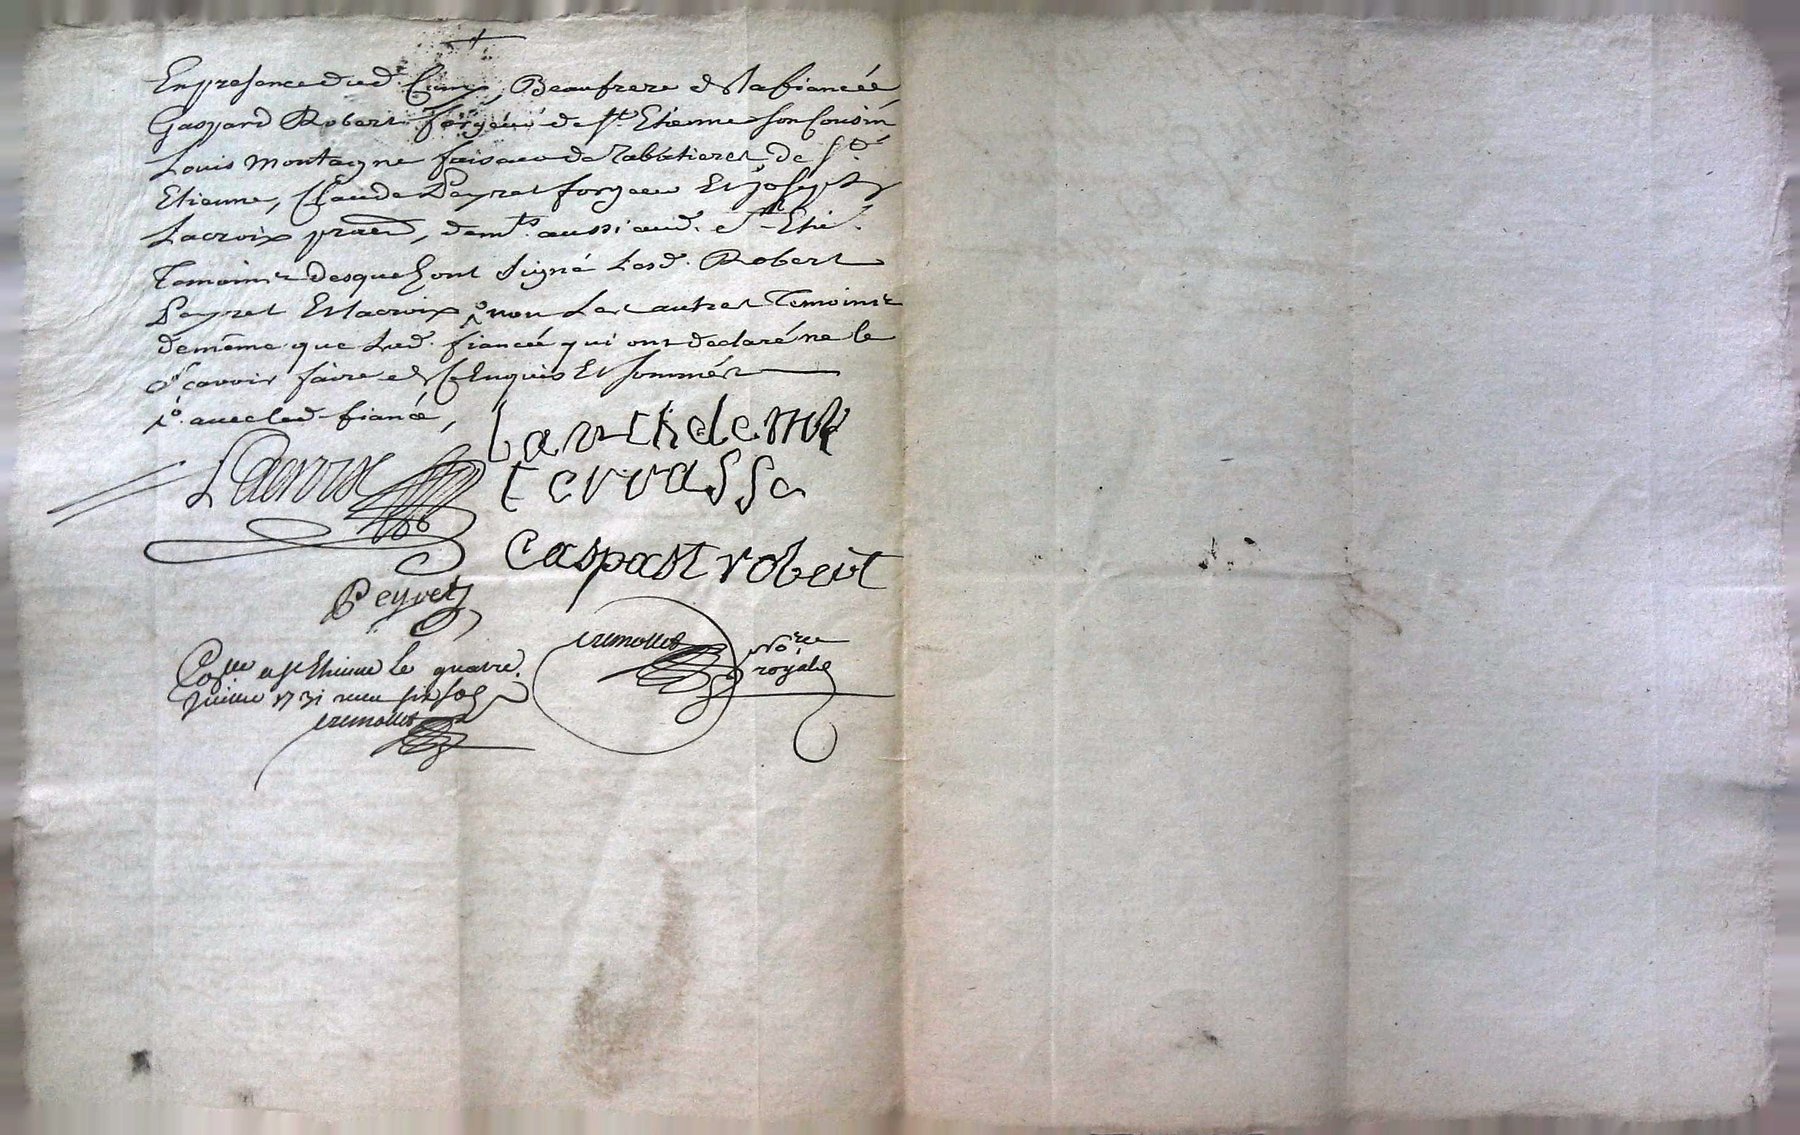 En presence dud. Beaufrere de la fiancée
Gaspard Robert forgeur de St. Etienne son Cousin
Louis Montagne faiseur de Tabatieres de St.
Etienne, Claude Peyret forgeur Et Joseph
Lacroix pratn, demts. aussi aud. St Etie.
Temoins desquels ont signé Lesd. Robert
Peyret Et Lacroix non Les autres Temoins
de même que Lad. fiancée qui ont declaré ne le
sçavoir faire de ce Enquis Et sommés
avec led. fiancé,
Lacroix
terrasse
caspast robert
Peyret
cremollet Nore
royal
Collé a St Etienne le quatre
1731 recu six sols
cremollet